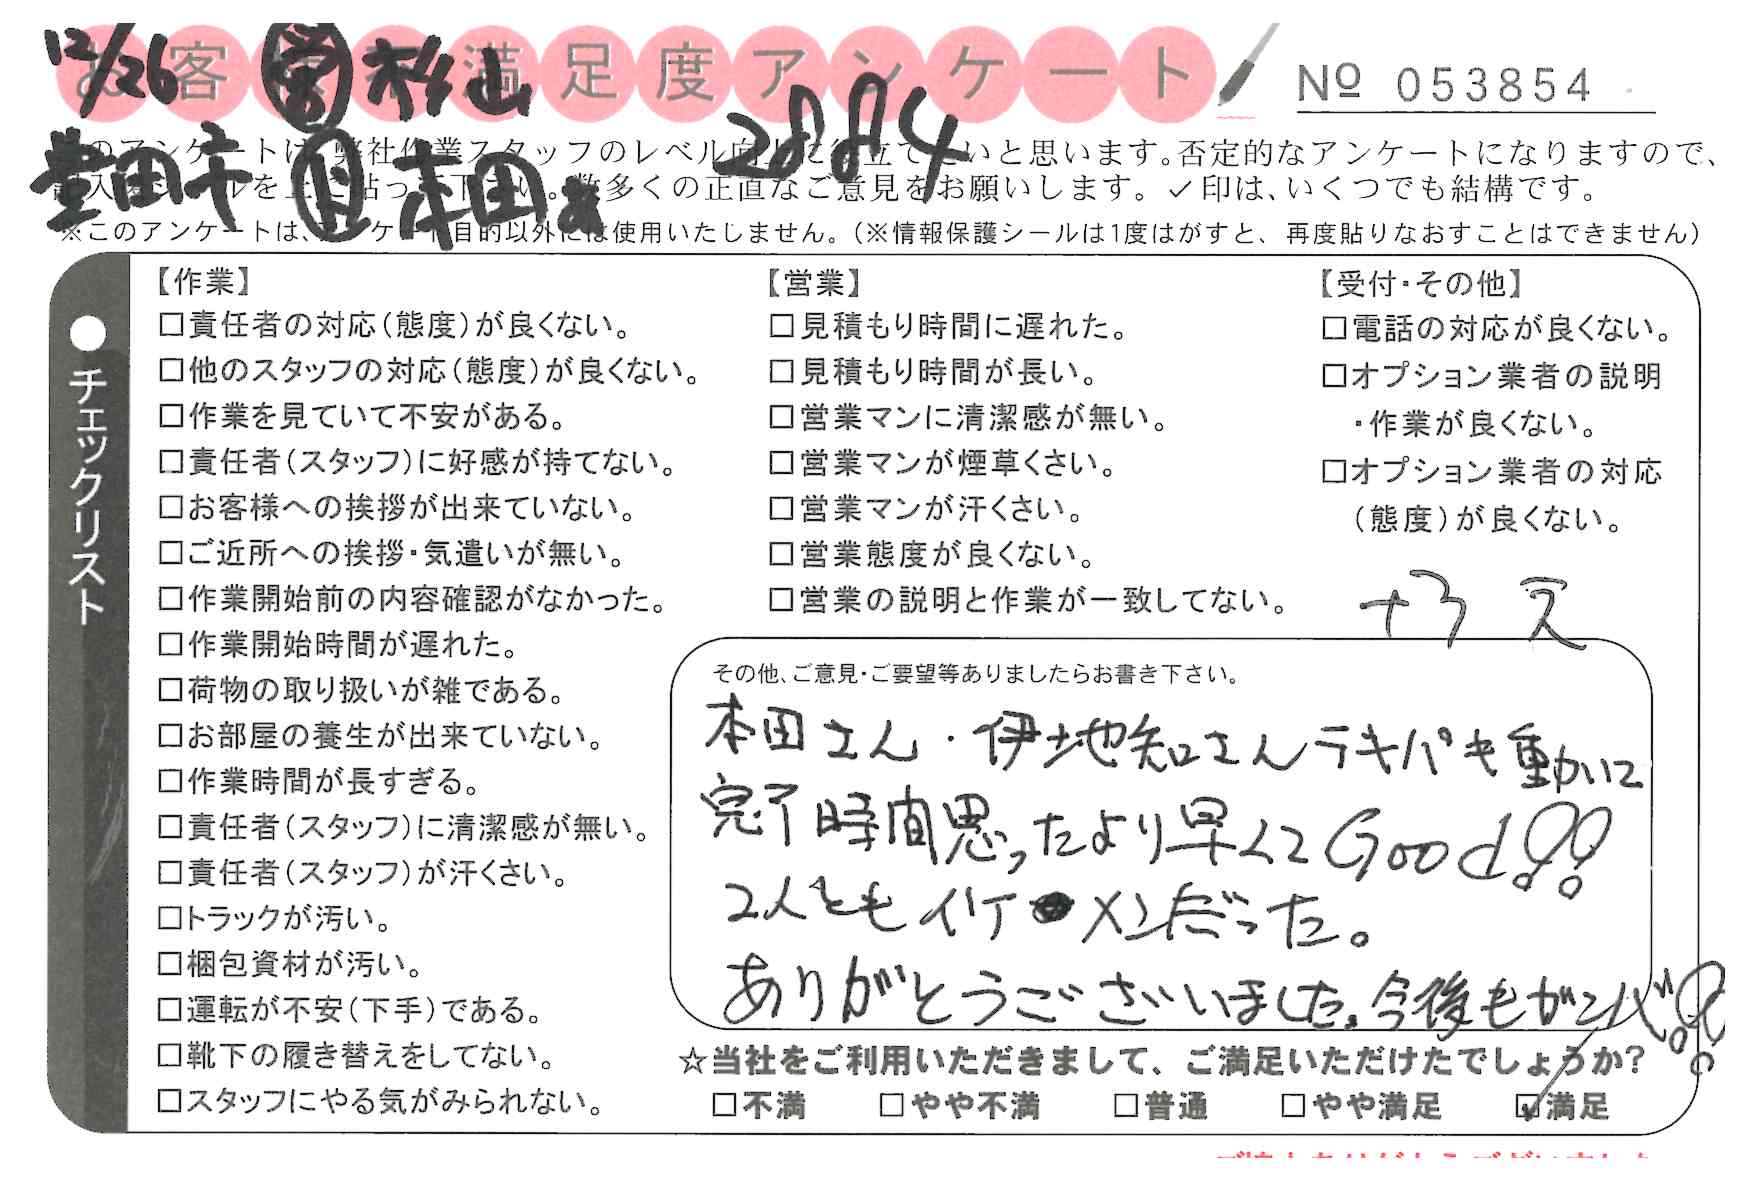 12/26 ㊢ 杉山
お客様ご満足度アンケート
№ 053854
2884
豊田市 本田
このアンケートは、弊社作業スタッフのレベル向上に役立てたいと思います。否定的なアンケートになりますので、
記入後シールを上に貼って下さい。数多くの正直なご意見をお願いします。✓印は、いくつでも結構です。
※このアンケートは、アンケート目的以外には使用いたしません。(※情報保護シールは1度はがすと、再度貼りなおすことはできません)
●チェックリスト
【作業】
□責任者の対応(態度)が良くない。
□他のスタッフの対応(態度)が良くない。
□作業を見ていて不安がある。
□責任者(スタッフ)に好感が持てない。
□お客様への挨拶が出来ていない。
□ご近所への挨拶・気遣いが無い。
□作業開始前の内容確認がなかった。
□作業開始時間が遅れた。
□荷物の取り扱いが雑である。
□お部屋の養生が出来ていない。
□作業時間が長すぎる。
□責任者(スタッフ)に清潔感が無い。
□責任者(スタッフ)が汗くさい。
□トラックが汚い。
□梱包資材が汚い。
□運転が不安(下手)である。
□靴下の履き替えをしてない。
□スタッフにやる気がみられない。
【営業】
□見積もり時間に遅れた。
□見積もり時間が長い。
□営業マンに清潔感が無い。
□営業マンが煙草くさい。
□営業マンが汗くさい。
□営業態度が良くない。
□営業の説明と作業が一致してない。
【受付・その他】
□電話の対応が良くない。
□オプション業者の説明
・作業が良くない。
□オプション業者の対応
(態度)が良くない。
+3 ス
その他、ご意見・ご要望等ありましたらお書き下さい。
本田さん・伊地知さんテキパキ動いて
完了時間思ったより早くてGood!!
2人ともイケメンだった。
ありがとうございました。今後もガンバ!!
☆当社をご利用いただきまして、ご満足いただけたでしょうか?
□不満 □やや不満 □普通 □やや満足 ☑満足